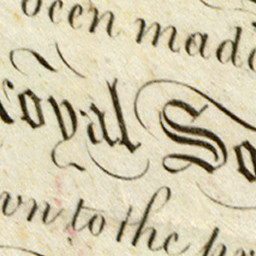 been made
Royal So
wn to the pr